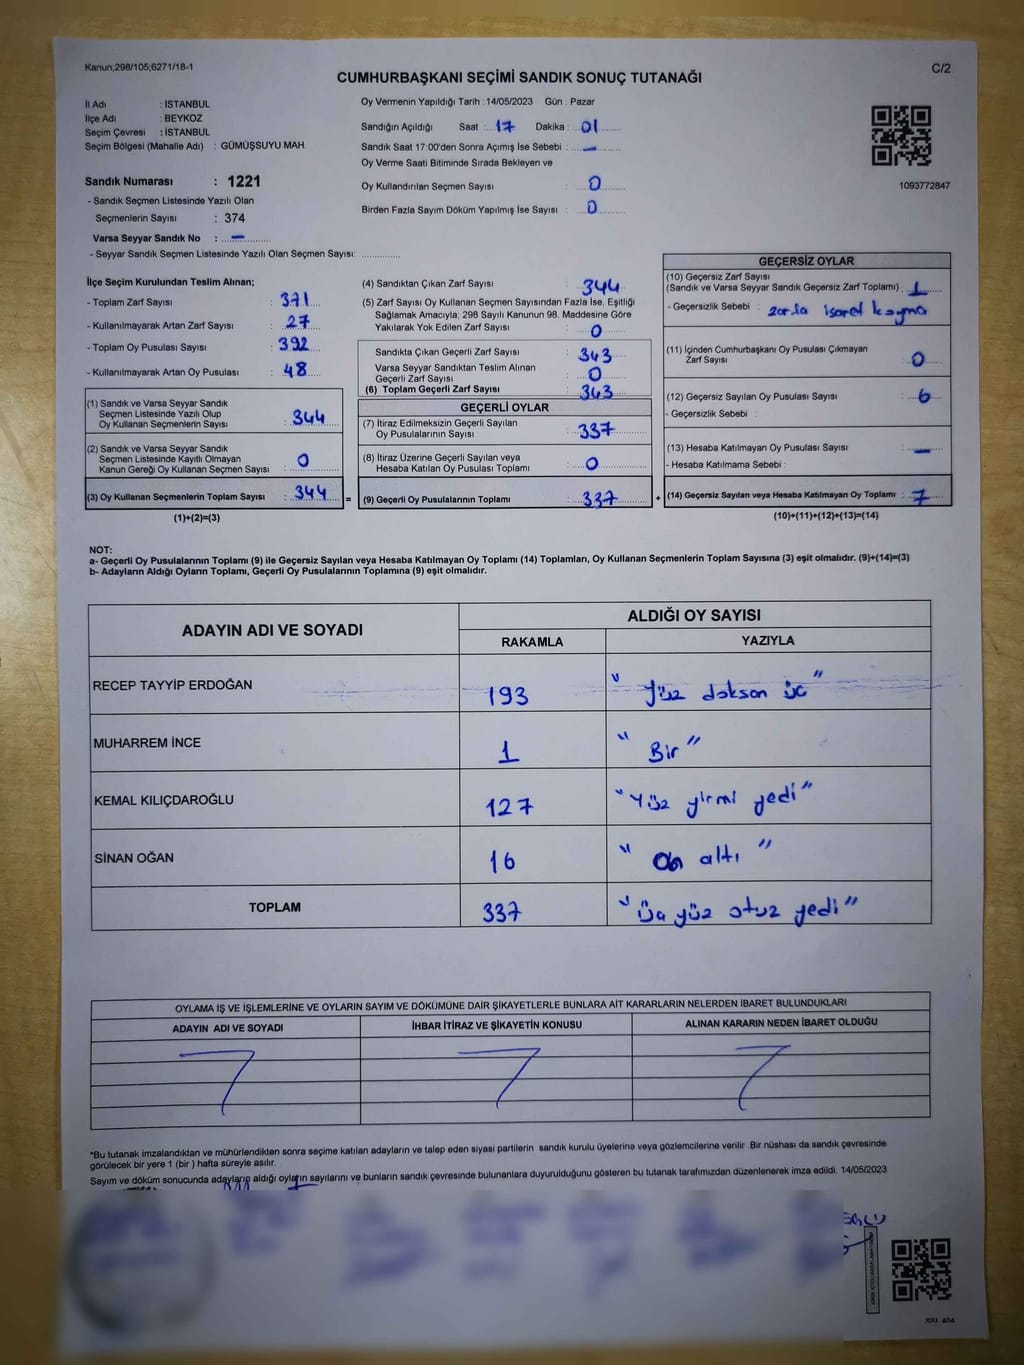 Kanun;298/105;6271/18-1
C/2
CUMHURBAŞKANI SEÇİMİ SANDIK SONUÇ TUTANAĞI
İl Adı : İSTANBUL
İlçe Adı : BEYKOZ
Seçim Çevresi : İSTANBUL
Seçim Bölgesi (Mahalle Adı) : GÜMÜŞSUYU MAH.
Oy Vermenin Yapıldığı Tarih : 14/05/2023 Gün : Pazar
Sandığın Açıldığı Saat : 17 Dakika : 01
Sandık Saat 17:00'den Sonra Açımış İse Sebebi : –
Oy Verme Saati Bitiminde Sırada Bekleyen ve
Oy Kullandırılan Seçmen Sayısı : 0
Birden Fazla Sayım Döküm Yapılmış İse Sayısı : 0
1093772847
Sandık Numarası : 1221
- Sandık Seçmen Listesinde Yazılı Olan
Seçmenlerin Sayısı : 374
Varsa Seyyar Sandık No : –
- Seyyar Sandık Seçmen Listesinde Yazılı Olan Seçmen Sayısı:
İlçe Seçim Kurulundan Teslim Alınan;
- Toplam Zarf Sayısı : 371
- Kullanılmayarak Artan Zarf Sayısı : 27
- Toplam Oy Pusulası Sayısı : 392
- Kullanılmayarak Artan Oy Pusulası : 48
(1) Sandık ve Varsa Seyyar Sandık
Seçmen Listesinde Yazılı Olup
Oy Kullanan Seçmenlerin Sayısı : 344
(2) Sandık ve Varsa Seyyar Sandık
Seçmen Listesinde Kayıtlı Olmayan
Kanun Gereği Oy Kullanan Seçmen Sayısı : 0
(3) Oy Kullanan Seçmenlerin Toplam Sayısı : 344 =
(1)+(2)=(3)
(4) Sandıktan Çıkan Zarf Sayısı : 344
(5) Zarf Sayısı Oy Kullanan Seçmen Sayısından Fazla İse, Eşitliği
Sağlamak Amacıyla; 298 Sayılı Kanunun 98. Maddesine Göre
Yakılarak Yok Edilen Zarf Sayısı : 0
Sandıkta Çıkan Geçerli Zarf Sayısı : 343
Varsa Seyyar Sandıktan Teslim Alınan
Geçerli Zarf Sayısı : 0
(6) Toplam Geçerli Zarf Sayısı : 343
GEÇERLİ OYLAR
(7) İtiraz Edilmeksizin Geçerli Sayılan
Oy Pusulalarının Sayısı : 337
(8) İtiraz Üzerine Geçerli Sayılan veya
Hesaba Katılan Oy Pusulası Toplamı : 0
(9) Geçerli Oy Pusulalarının Toplamı : 337 +
GEÇERSİZ OYLAR
(10) Geçersiz Zarf Sayısı
(Sandık ve Varsa Seyyar Sandık Geçersiz Zarf Toplamı) : 1
- Geçersizlik Sebebi : zarfa işaret koyma
(11) İçinden Cumhurbaşkanı Oy Pusulası Çıkmayan
Zarf Sayısı : 0
(12) Geçersiz Sayılan Oy Pusulası Sayısı : 6
- Geçersizlik Sebebi :
(13) Hesaba Katılmayan Oy Pusulası Sayısı : –
- Hesaba Katılmama Sebebi :
(14) Geçersiz Sayılan veya Hesaba Katılmayan Oy Toplamı : 7
(10)+(11)+(12)+(13)=(14)
NOT:
a- Geçerli Oy Pusulalarının Toplamı (9) ile Geçersiz Sayılan veya Hesaba Katılmayan Oy Toplamı (14) Toplamları, Oy Kullanan Seçmenlerin Toplam Sayısına (3) eşit olmalıdır. (9)+(14)=(3)
b- Adayların Aldığı Oyların Toplamı, Geçerli Oy Pusulalarının Toplamına (9) eşit olmalıdır.
ADAYIN ADI VE SOYADI
ALDIĞI OY SAYISI
RAKAMLA YAZIYLA
RECEP TAYYİP ERDOĞAN 193 "Yüz doksan üç"
MUHARREM İNCE 1 "Bir"
KEMAL KILIÇDAROĞLU 127 "Yüz yirmi yedi"
SİNAN OĞAN 16 "On altı"
TOPLAM 337 "Üç yüz otuz yedi"
OYLAMA İŞ VE İŞLEMLERİNE VE OYLARIN SAYIM VE DÖKÜMÜNE DAİR ŞİKAYETLERLE BUNLARA AİT KARARLARIN NELERDEN İBARET BULUNDUKLARI
ADAYIN ADI VE SOYADI İHBAR İTİRAZ VE ŞİKAYETİN KONUSU ALINAN KARARIN NEDEN İBARET OLDUĞU
*Bu tutanak imzalandıktan ve mühürlendikten sonra seçime katılan adayların ve talep eden siyasi partilerin sandık kurulu üyelerine veya gözlemcilerine verilir .Bir nüshası da sandık çevresinde
görülecek bir yere 1 (bir ) hafta süreyle asılır.
Sayım ve döküm sonucunda adayların aldığı oyların sayılarını ve bunların sandık çevresinde bulunanlara duyurulduğunu gösteren bu tutanak tarafımızdan düzenlenerek imza edildi. 14/05/2023